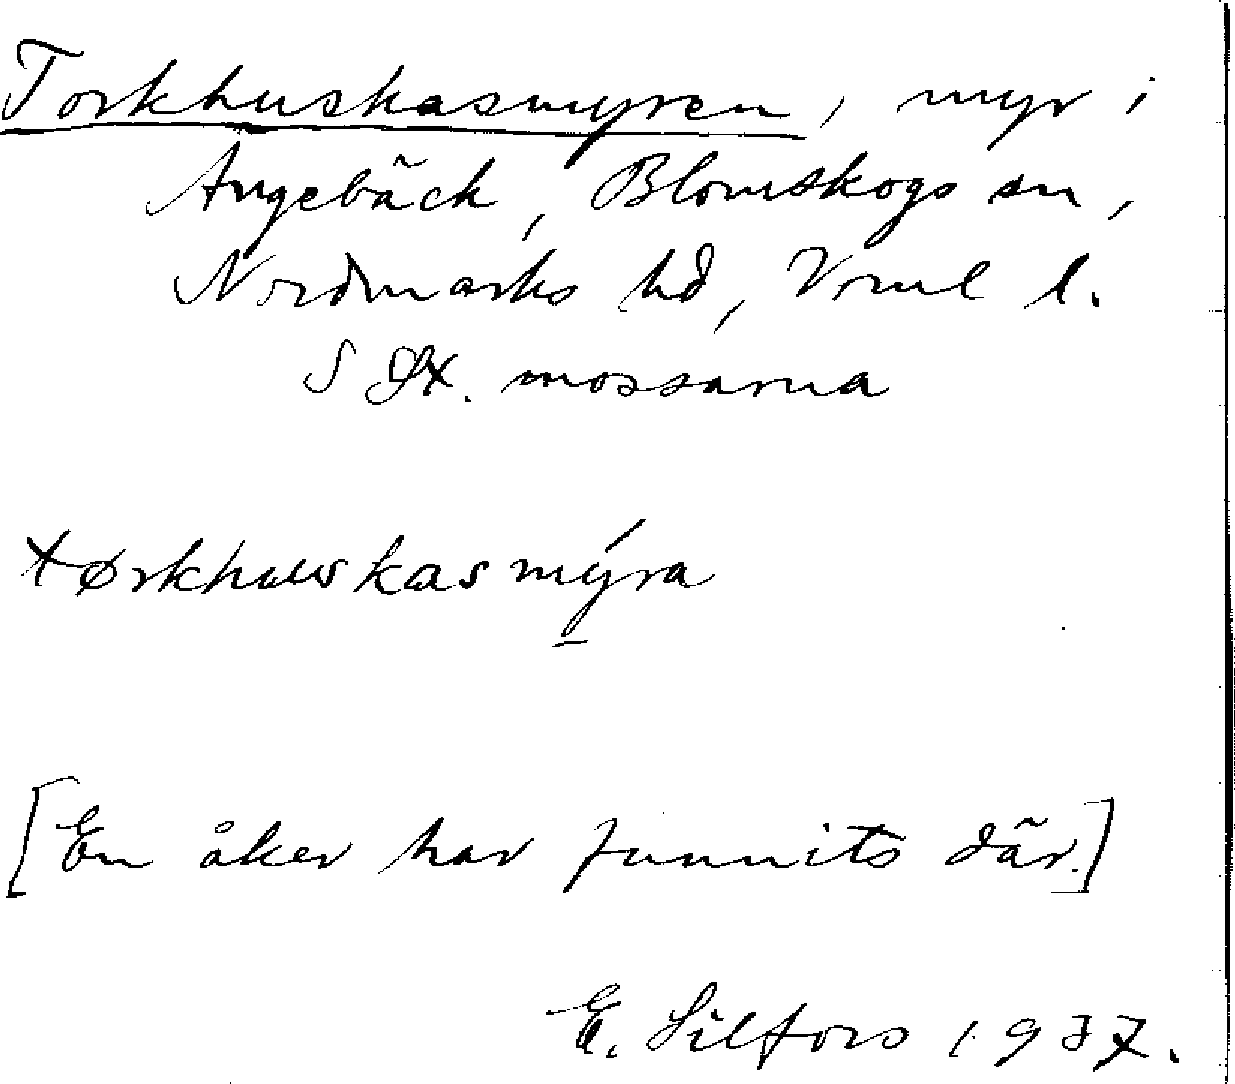 Torkhuskasmyren, myr i
Angebäck, Blomskogs sn,
Nordmarks hd, Vrml l.
S mossarna
tørkhuskasmýra
[En åker har funnits där.]
E. Silfors 1937.